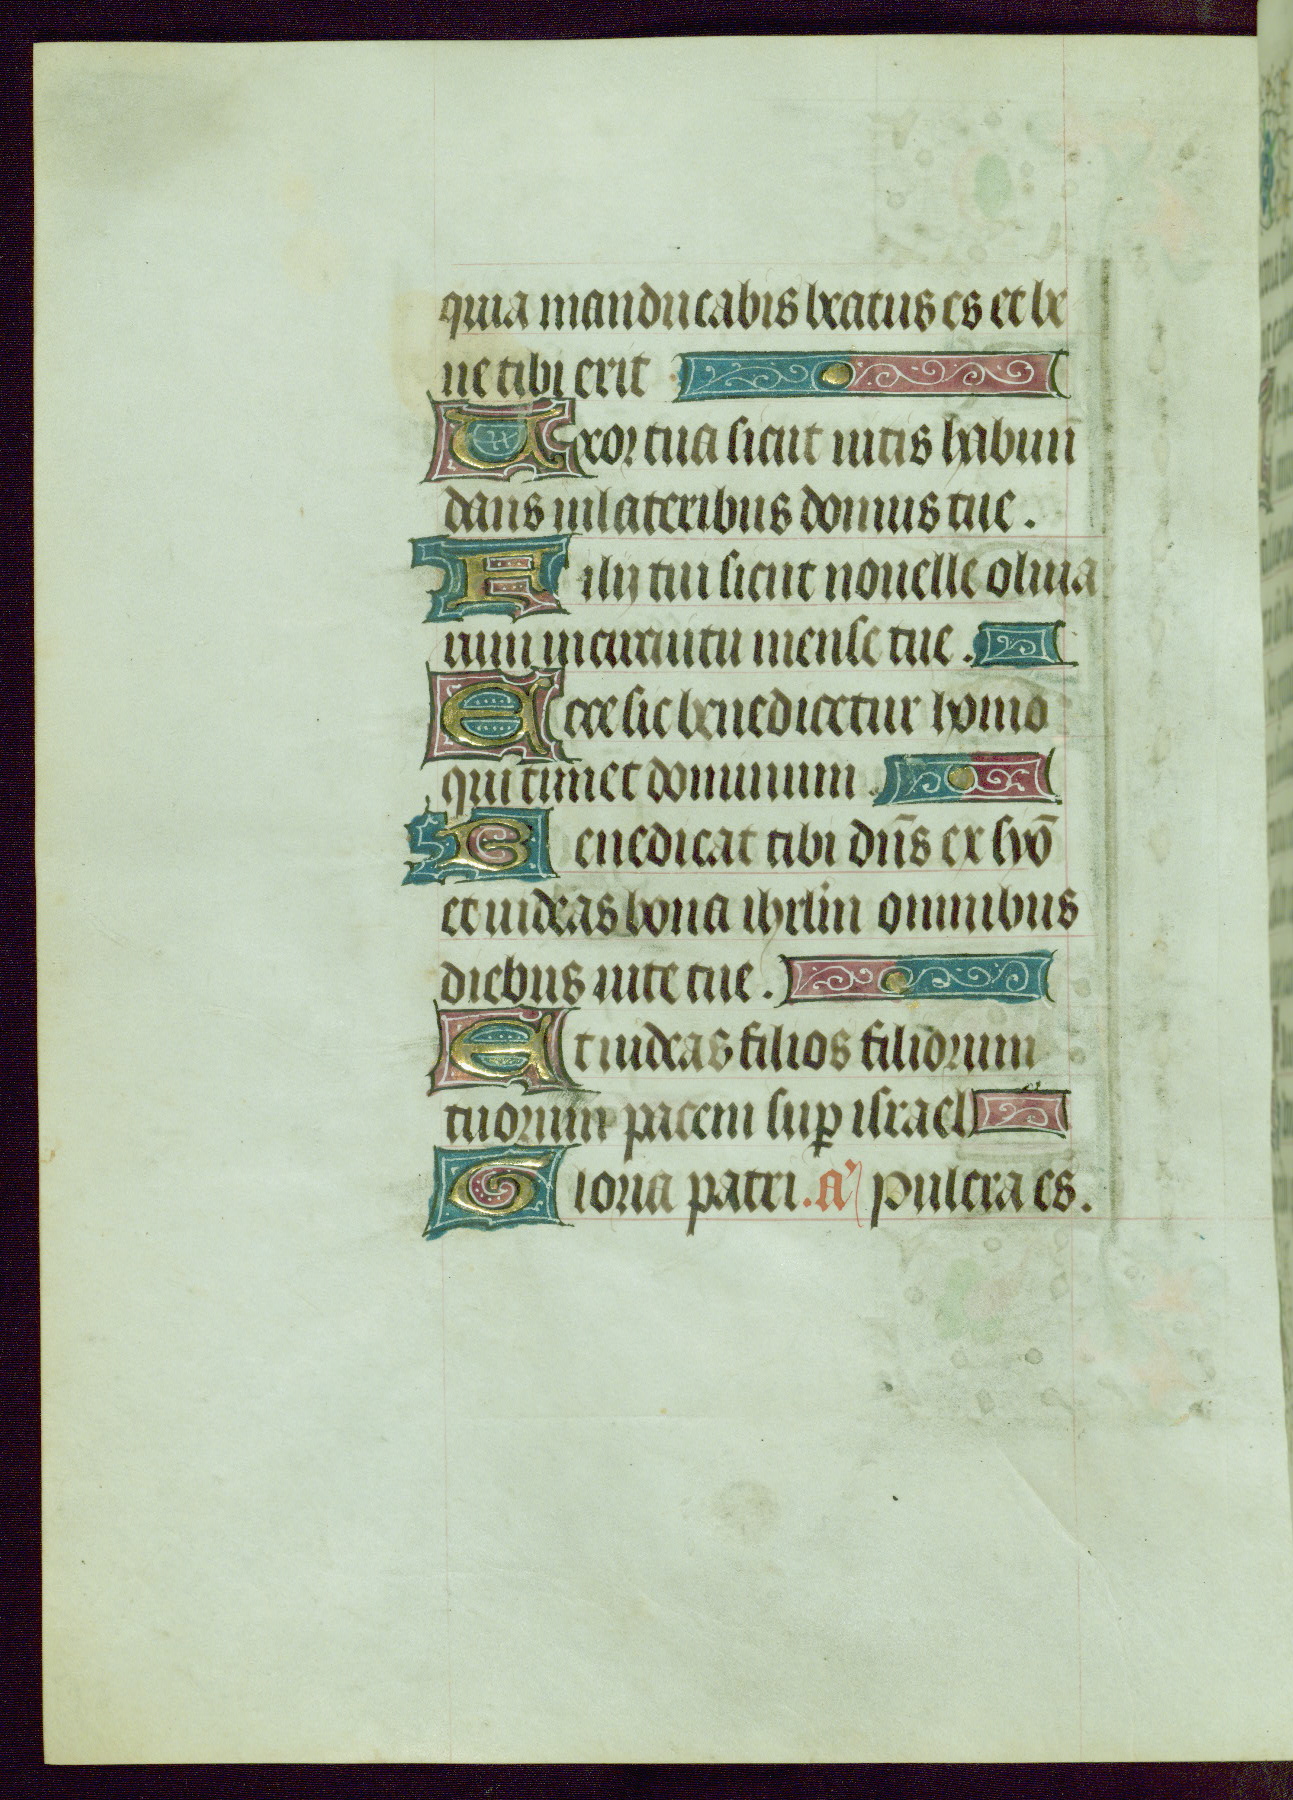 quia manducabis beatus es et be
ne tibi erit
Uxor tua sicut uitis habun̄
dans in lateribus domus tue.
Filij tui sicut nouelle oliua
rum in circuitu mense tue.
Ecce sic benedicetur homo
qui timet dominum.
Benedicat tibi dn̄s ex syō
et uideas bona ihrl̄m omnibus
diebus uite tue.
Et uideas filios filiorum
tuorum pacem suꝑ israel
Gloria patri. a' pulcra es.